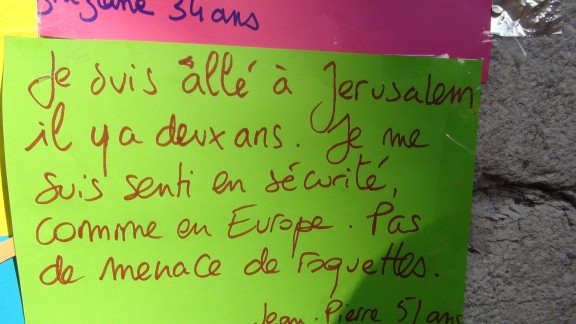 34 ans
Je suis allé à Jerusalem
il y a deux ans. Je me
suis senti en sécurité,
comme en Europe. Pas
de menace de roquettes.
Jean-Pierre 51 ans